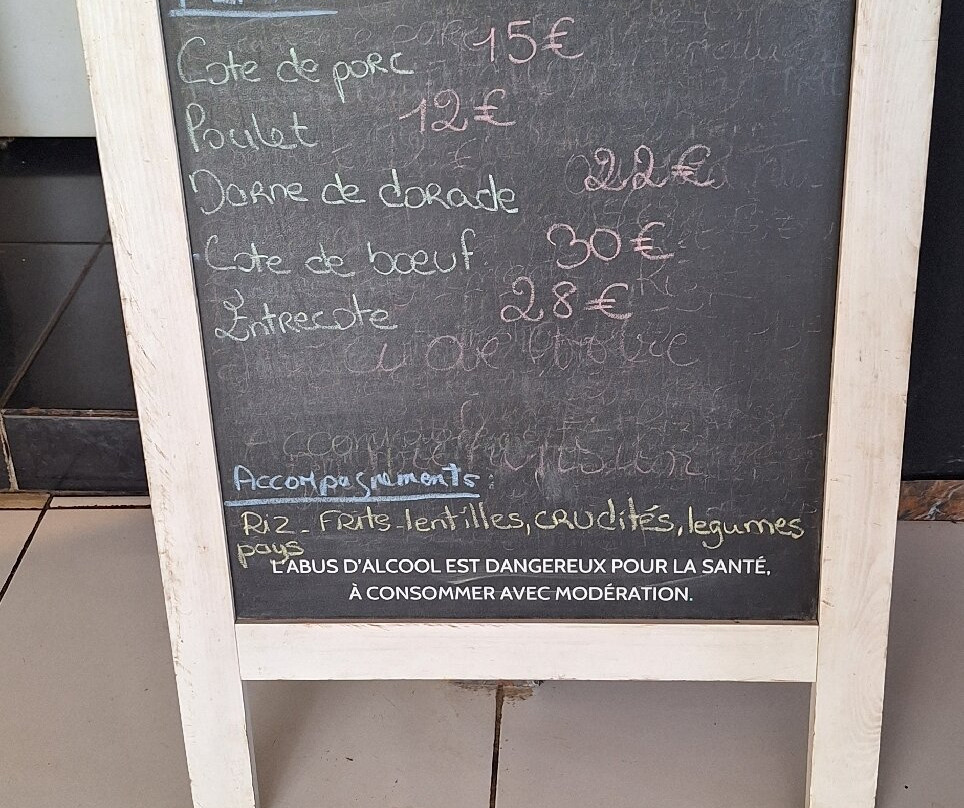 Cote de porc 15€
Poulet 12€
Darne de dorade 22€
Cote de boeuf 30€
Entrecote 28€
Accompagnements:
Riz - Frits - lentilles, crudités, legumes
pays
L'ABUS D'ALCOOL EST DANGEREUX POUR LA SANTÉ,
À CONSOMMER AVEC MODÉRATION.